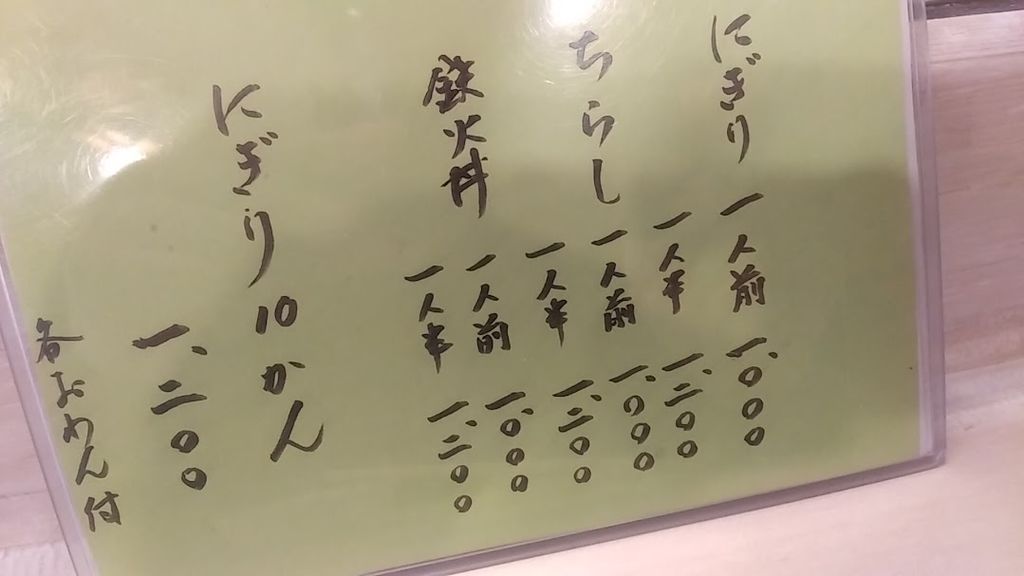 にぎり 一人前 一、〇〇〇
一人半 一、二〇〇
ちらし 一人前 一、〇〇〇
一人半 一、二〇〇
鉄火丼 一人前 一、〇〇〇
一人半 一、二〇〇
にぎり10かん
一、二〇〇
各おわん付